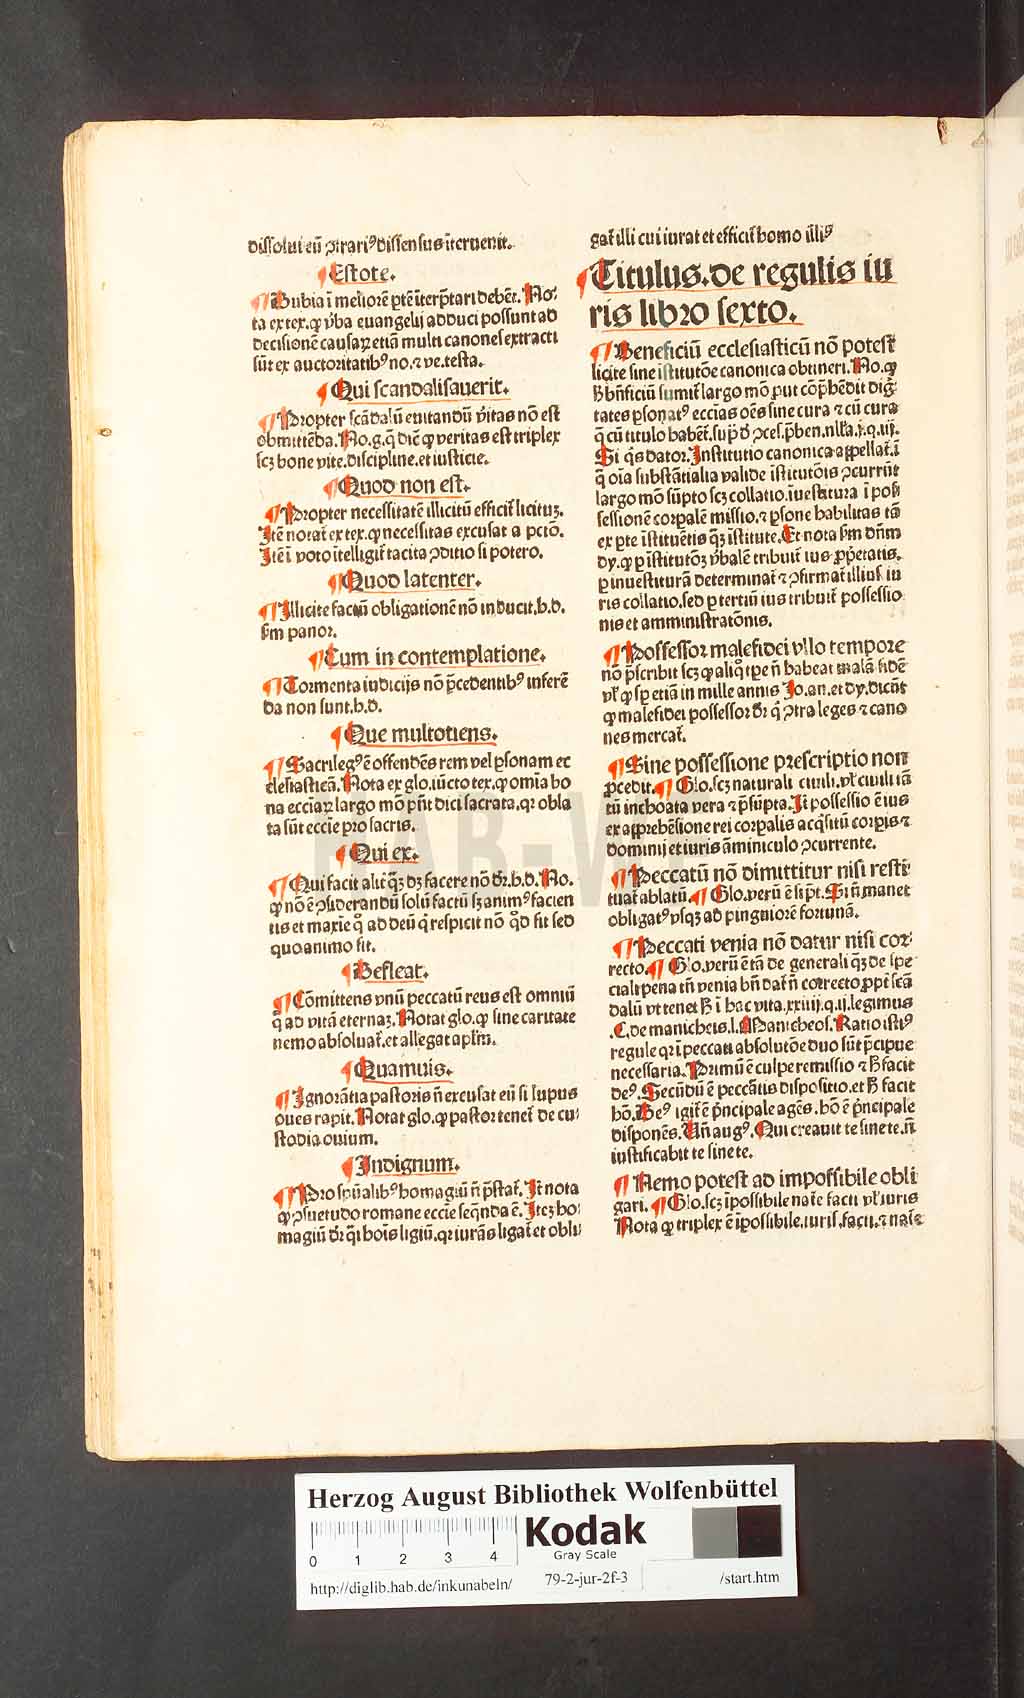 dissolui eū ꝯtrariꝰ dissensus īteruenit.
¶Estote.
¶Dubia ī meliorē ꝑtē īterp̄tari debēt. No-
ta ex tex. ꝙ v̓ba euangelij adduci possunt ad
decisionē causaꝝ etiā multi canones extracti
sūt ex auctoritatibꝰ no. ⁊ ve. testa.
¶Qui scandalisauerit.
¶Propter scādalū euitandū v̓itas nō est
obmittēda. No. g. q̄ dic̄ ꝙ veritas est triplex
scꝫ bone vite. discipline. et iusticie.
¶Quod non est.
¶Propter necessitatē illicitū efficit̄ licituꝫ.
Itē notat̄ ex tex. ꝙ necessitas excusat a pctō.
Itē ī voto ītelligit̄ tacita ꝯditio si potero.
¶Quod latenter.
¶Illicite factū obligationē nō inducit. h. d.
s̄m panor.
¶Cum in contemplatione.
¶Tormenta indicijs nō p̄cedentibꝰ inferē
da non sunt. h. d.
¶Que multotiens.
¶Sacrilegꝰ ē offendēs rem vel ꝑsonam ec
clesiasticā. Nota ex glo. iūcto tex. ꝙ om̄ia bo
na eccīaꝝ largo mō pn̄t dici sacrata. qꝛ obla
ta sūt eccīe pro sacris.
¶Qui ex.
¶Qui facit alit̄ qꝫ dꝫ facere nō dr̄. h. d. No.
ꝙ nō ē ꝯsiderandū solū factū sꝫ animꝰ facien
tis et maxīe q̊ ad deū q̄ respicit nō qd̄ fit sed
quo animo fit.
¶Defleat.
¶Cōmittens vnū peccatū reus est omniū
q̊ ad vitā eternaꝫ. Notat glo. ꝙ sine caritate
nemo absoluat̄. et allegat apl̄m.
¶Quamuis.
¶Ignorātia pastoris n̄ excusat eū si lupus
oues rapit. Notat glo. ꝙ pastor tenet̄ de cu-
stodia ouium.
¶Indignum.
¶Pro spūalibꝰ homagiū n̄ p̄stat̄. It̄ nota
ꝙ ꝯsuetudo romane eccīe seq̄nda ē. Iteꝫ ho-
magiū dr̄ q̄si hoīs ligiū. qꝛ iurās ligat̄ et obli-
gat̄ illi cui iurat et efficit̄ homo illiꝰ
¶Titulus. de regulis iu
ris libro sexto.
¶Beneficiū ecclesiasticū nō potest
licite sine īstitutōe canonica obtineri. No. ꝙ
h̄ bn̄ficiū sumit̄ largo mō ꝓut cōp̄hēdit dig-
tates ꝑsonatꝰ eccīas oēs sine cura ⁊ cū cura
q̄ cū titulo habēt. sup̄ d̄ ꝯces. p̄ben. nll̄a. j. q. iij.
Si q̄s dator. Institutio canonica appellat̄. ī
q̄ oīa substātialia valide īstitutōis ꝯcurrūt
largo mō sūpto scꝫ collatio. īuestitura ī pos
sessionē corpalē missio. ⁊ ꝑsone habilitas tā
ex ꝑte īstituētis qꝫ īstitute. Et nota s̄m dn̄m
dy. ꝙ ꝑ īstitutōꝫ v̓balē tribuit̄ ius ꝓpetatis.
ꝑ inuestiturā determinat̄ ⁊ ꝯfirmat̄ illiusiu
ris collatio. sed ꝑ tertiū ius tribuit̄ possessio
nis et amministratōnis.
¶Possessor malefidei vllo tempore
nō p̄scribit scꝫ ꝙ aliq̊ tꝑe n̄ habeat malā fidē
vl̄ ꝙ sp̄ etiā in mille annis Jo. an. et dy. dicūt
ꝙ malefidei possessor dr̄ q̄ ꝯtra leges ⁊ cano
nes mercat̄.
¶Sine possessione prescriptio non
ꝓcedit. ¶Glo. scꝫ naturali ciuili. vl̄ ciuili tā
tū inchoata vera ⁊ p̄sūpta. It̄ possessio ē ius
ex apprehēsione rei corpalis acq̄sitū corpis ⁊
dominij et iuris āminiculo ꝯcurrente.
¶Peccatū nō dimittitur nisi resti-
tuat̄ ablatū. ¶Glo. verū ē si pt̄. Sin̄ manet
obligatꝰ vsqꝫ ad pinguiorē fortunā.
¶Peccati venia nō datur nisi cor-
recto. ¶Glo. verū ē tā de generali qꝫ de spe
ciali pena tn̄ venia bn̄ dat̄ n̄ correcto ꝓpt̄ scā
dalū vt tenet h̄ ī hac vita. xxiiij. q. ij. legimus
.C. de manicheis. l. Manicheos. Ratio istiꝰ
regule qꝛ ī peccati absolutōe duo sūt p̄cipue
necessaria. Primū ē culpe remissio ⁊ h̄ facit
deꝰ. Secūdū ē peccātis dispositio. et h̄ facit
hō. Deꝰ igit̄ ē p̄ncipale agēs. hō ē p̄ncipale
disponēs. Un̄ augꝰ. Qui creauit te sine te. n̄
iustificabit te sine te.
¶Nemo potest ad impossibile obli
gari. ¶Glo. scꝫ īpossibile nat̄e facti vl̄ iuris
Nota ꝙ triplex ē īpossibile. iuris. facti. ⁊ nat̄e
Herzog August Bibliothek Wolfenbüttel
0 1 2 3 4
Kodak
Gray Scale
http://diglib.hab.de/inkunabeln/ 79-2-jur-2f-3 /start.htm